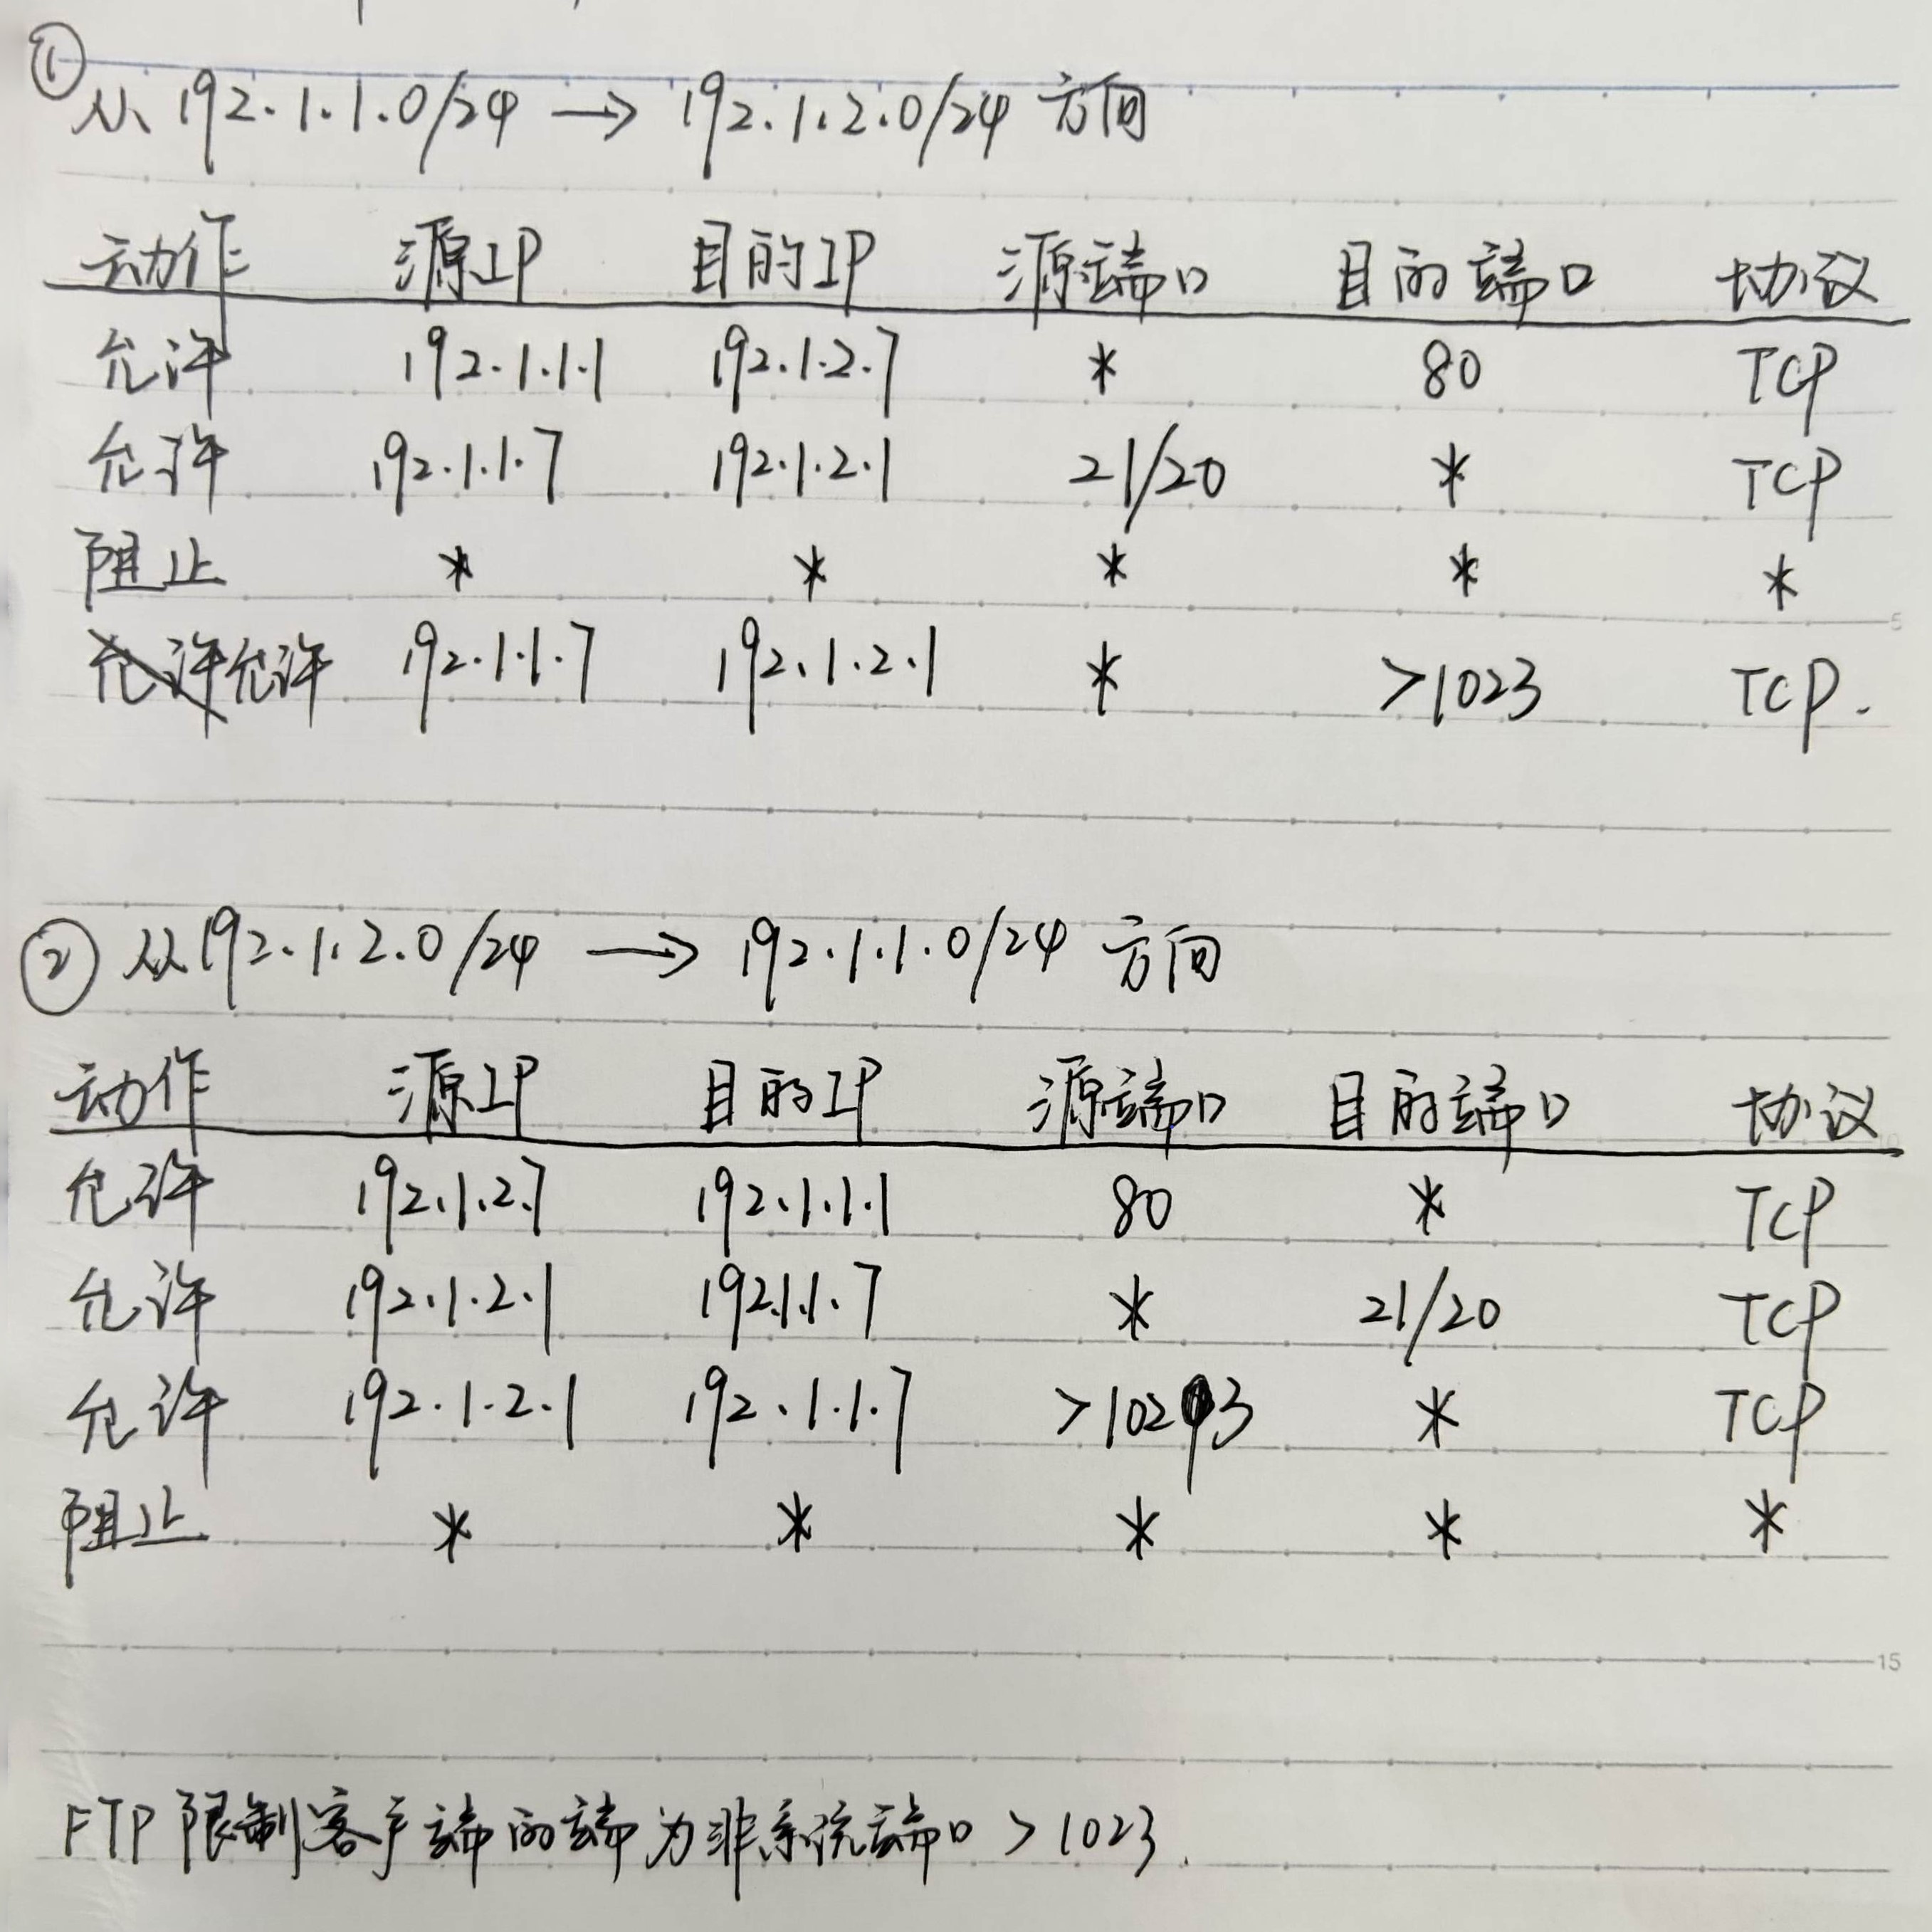 ① 从 192.1.1.0/24 → 192.1.2.0/24 方向
动作 源IP 目的IP 源端口 目的端口 协议
允许 192.1.1.1 192.1.2.7 * 80 TCP
允许 192.1.1.7 192.1.2.1 21/20 * TCP
阻止 * * * * *
允许 192.1.1.7 192.1.2.1 * >1023 TCP.
② 从192.1.2.0/24 → 192.1.1.0/24 方向
动作 源IP 目的IP 源端口 目的端口 协议
允许 192.1.2.7 192.1.1.1 80 * TCP
允许 192.1.2.1 192.1.1.7 * 21/20 TCP
允许 192.1.2.1 192.1.1.7 >1023 * TCP
阻止 * * * * *
15
FTP 限制客户端的端为非系统端口 >1023.